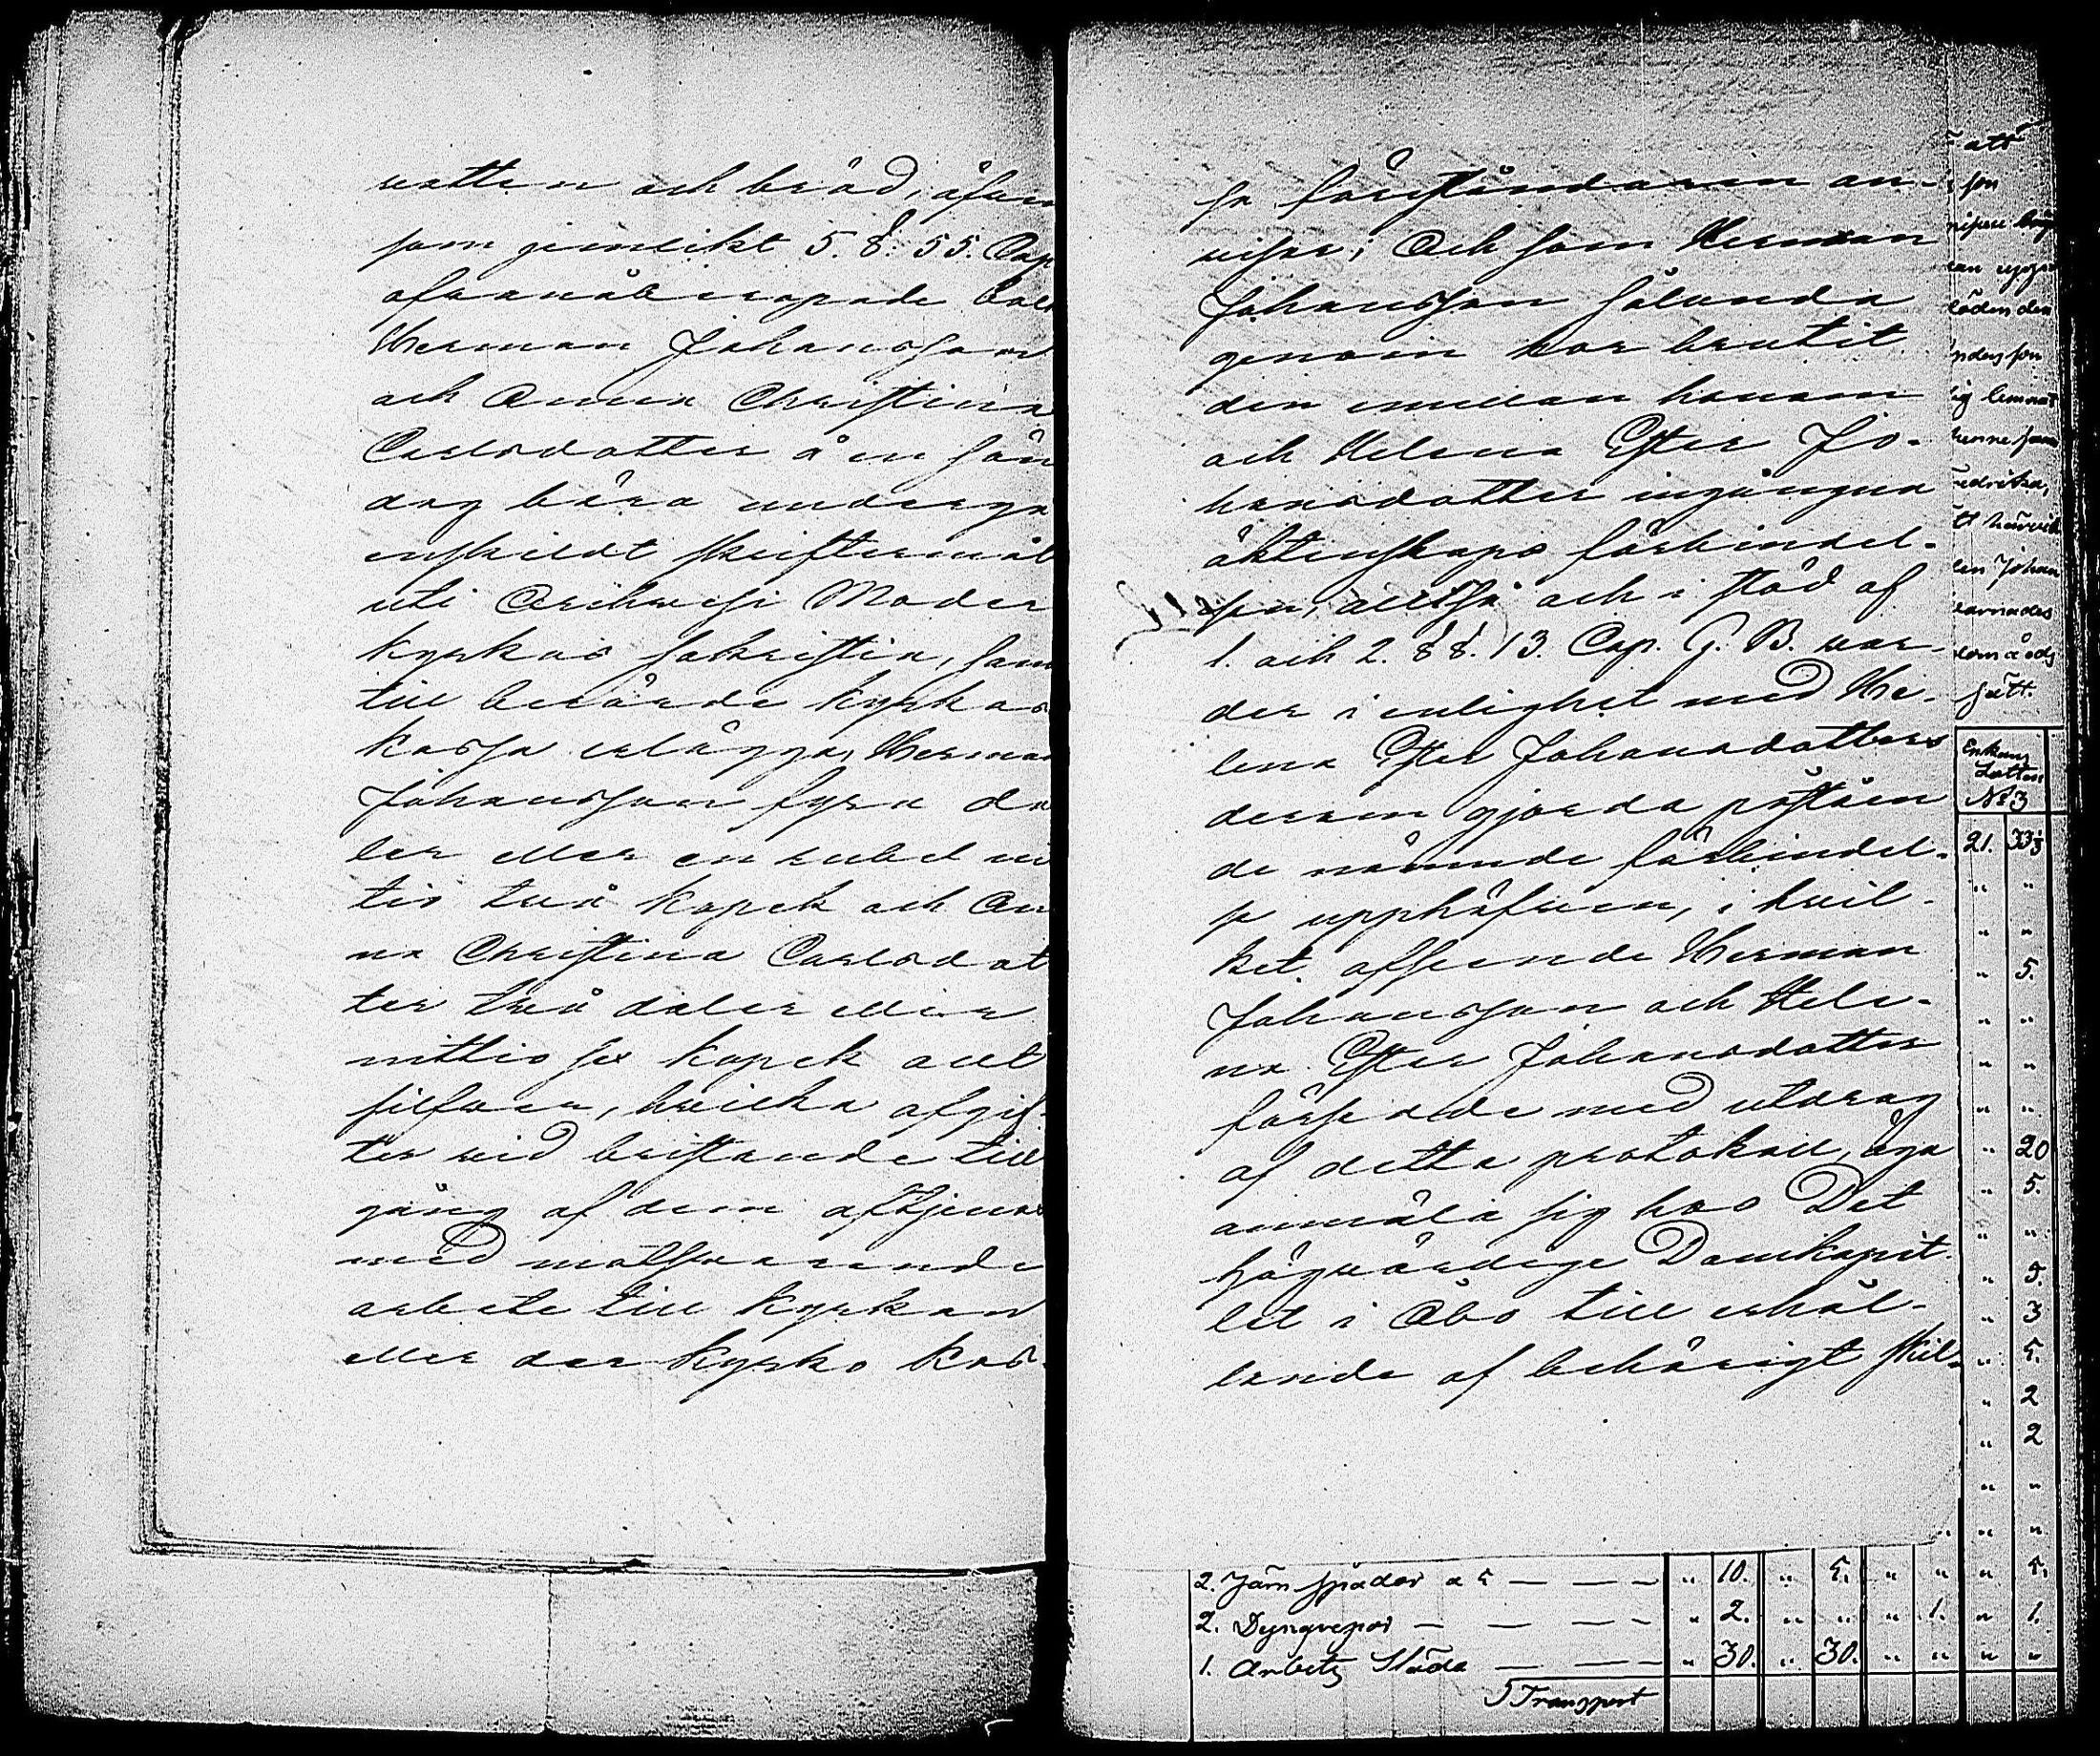 vatten och bröd, äfven
som jemlikt 5. §. 55. Cap
ofvanåberopade balk
Herman Johansson
och Anna Christina
Carlsdotter å en sön
dag böra undergå
enskildt skriftermål
uti Moder
kyrkas sakristia, samt
till berörde kyrkas
kassa erlägga, Herman
Johansson fyra da
ler eller en rubel ni
tio två kopek och An
na Christina Carlsdot
ter två daler eller
nittio sex kopek allt
silfver, hvilka afgif
ter vid bristande till
gång af dem aftjenas
med motsvarande
arbete till kyrkan
eller der kyrko kas-
sa föreståndaren an-
visar; Och som Herman
Johansson sålunda
genom hor brutit
den emellan honom
och Helena Ester Jo-
hansdotter ingångna
äktenskaps förbindel-
sen, alltså och i stöd af
1. och 2. §§. 13. Cap. G. B. var-
der i enlighet med He-
lena Ester Johansdotters
derom gjorda påståen
de nämnde förbindel-
se upphäfven, i hvil-
ket afseende Herman
Johansson och Hele-
na Ester Johansdotter
försedde med utdrag
af detta protokoll, äga
anmäla sig hos Det
högvördige Domkapit
let i Åbo till erhål-
lande af behörigt skil-
att
son
löden den
lemnat
henne
Johan
satt.
Enkans
Lotten
No 3
21. 33 1/3
" "
" "
" 5.
" "
" "
" "
" 20
" 5.
" "
" 5.
" 3
" 5.
" 2
" 2
" "
" " "
2. Järn spador a 5 — — — " 10. " 5. " " " 5.
2. Dyngrepor — — — — " 2. " " " 1. " 1.
1. Arbets Släda — — — " 30. " 30. " " " "
Transport